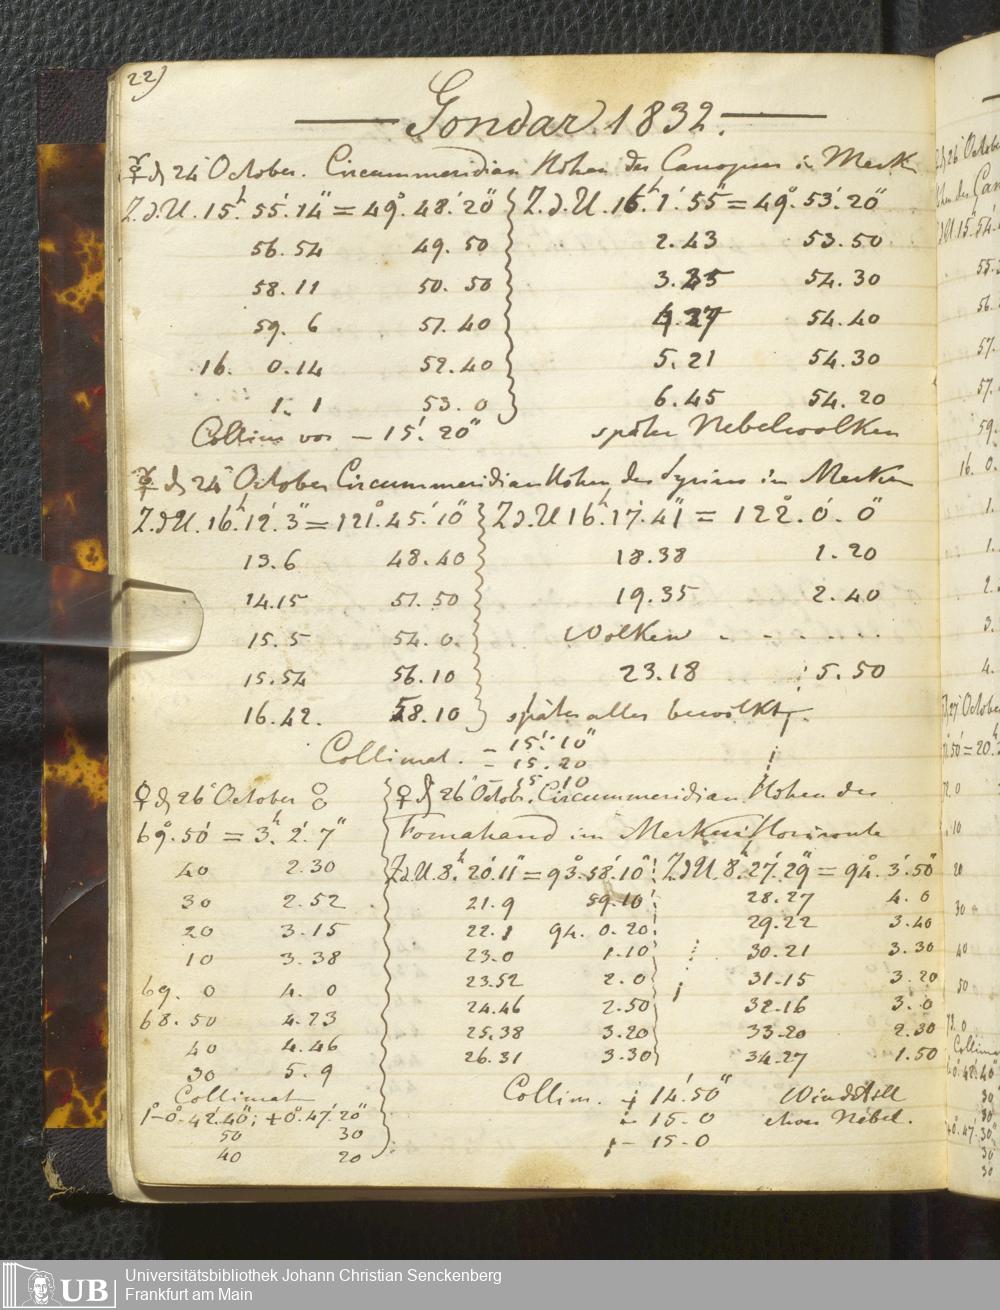 22)
Gondar 1832.
☿ d 24t October. Circummeridian Höhen des Canopus in Merk
Z.d.U. 15h. 55'. 14" = 49°. 48'. 20" Z.d.U. 16h. 1'. 55" = 49°. 53'. 20"
56. 54 49. 50 2. 43 53. 50
58. 11 50. 50 3. 35 54. 30
59. 6 51. 40 4. 27 54. 40
16. 0. 14 52. 40 5. 21 54. 30
1. 1 53. 0 6. 45 54. 20
Collim vor - 15'. 20" später Nebelwolken
☿ d 24t October Circummeridian Höhen des Syrius in Merkur
Z.d.U. 16h. 12'. 3" = 121°. 45'. 10" Z.d.U 16h. 17'. 41" = 122°. 0'. 0"
13. 6 48. 40 18. 38 1. 20
14. 15 51. 50 19. 35 2. 40
15. 5 54. 0. Wolken - - - - - -
15. 54 56. 10 23. 18 5. 50
16. 42. 58. 10 später alles bewölkt.
Collimat. - 15'. 10"
- 15. 20
- 15. 10
♀ d 26t October
69°. 50' = 3h. 2'. 7"
40 2. 30
30 2. 52
20 3. 15
10 3. 38
69. 0 4. 0
68. 50 4. 23
40 4. 46
30 5. 9
Collimat
- 0°. 42'. 40"; + 0°. 47'. 20"
50 30
40 20
♀ d 26t Octobr. Circummeridian Höhen des
Fomahand im Merkur Horizonte
Z.d.U. 8h. 20'. 11" = 93°. 58'. 10" Z.d.U. 8h. 27'. 29" = 94°. 3'. 50"
21. 9 59. 10 28. 27 4. 0
22. 1 94. 0. 20 29. 22 3. 40
23. 0 1. 10 30. 21 3. 30
23. 52 2. 0 31. 15 3. 20
24. 46 2. 50 32. 16 3. 0
25. 38 3. 20 33. 20 2. 30
26. 31 3. 30 34. 27 1. 50
Collim. - 14'. 50" Windstill
- 15. 0 etwas Nebel.
- 15. 0
UB
Universitätsbibliothek Johann Christian Senckenberg
Frankfurt am Main